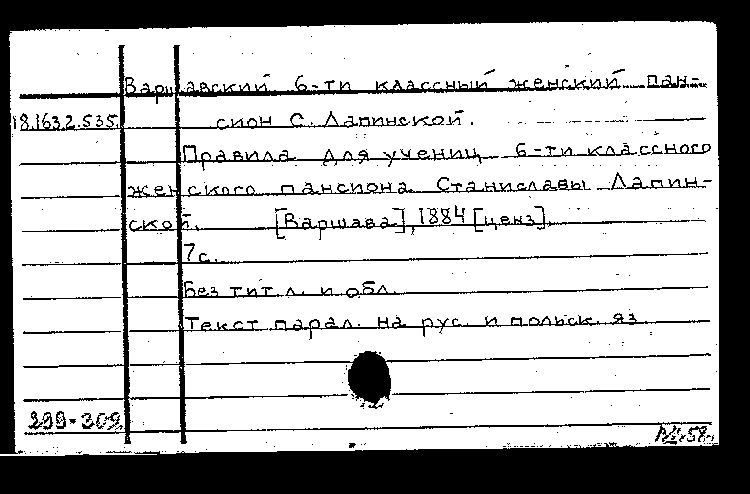 Варшавский 6-ти классный женский пан-
18.163.2.535. сион С. Лапинской.
Правила для учениц 6-ти классного
женского пансиона Станиславы Лапин-
ской. [Варшава], 1884 [ценз].
7с.
Без тит. л. и обл.
Текст парал. на рус. и польск. яз.
299-309.